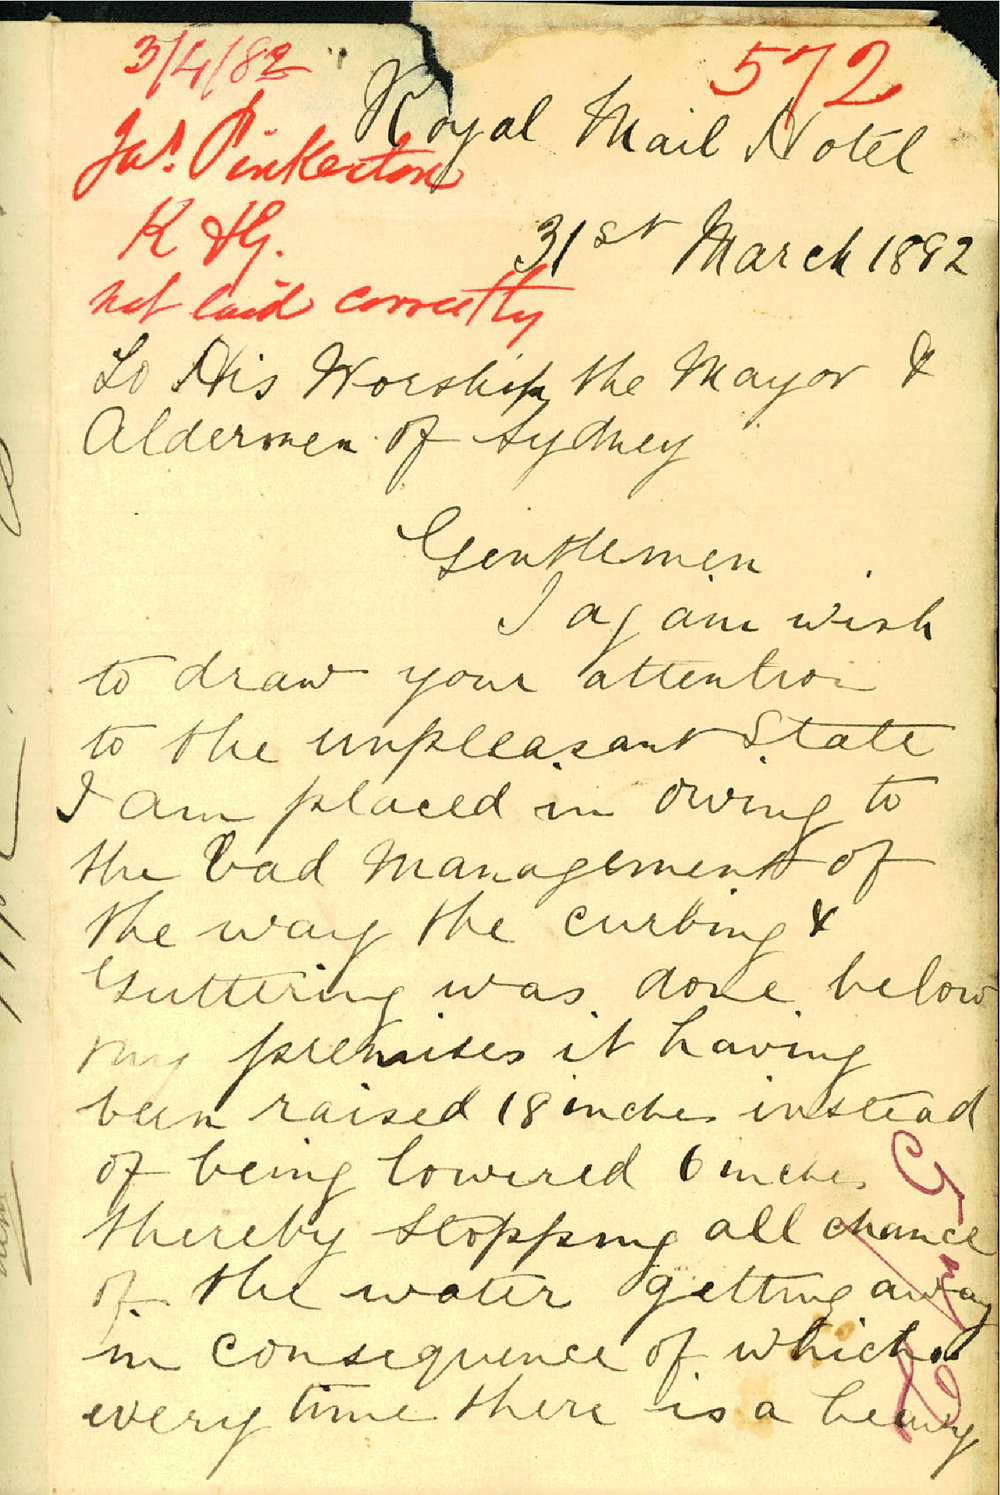 3/4/82
572
Royal Mail Hotel
Jas. Pinkerton
K & G.
31st March 1882
not laid correctly
To His Worship the Mayor &
Aldermen of Sydney
Gentlemen
I again wish
to draw your attention
to the unpleasant State
I am placed in owing to
the bad management of
the way the curbing &
Guttering was done below
my premises it having
been raised 18 inches instead
of being lowered 6 inches
thereby stopping all chance
of the water getting away
in consequence of which
every time there is a heavy
572